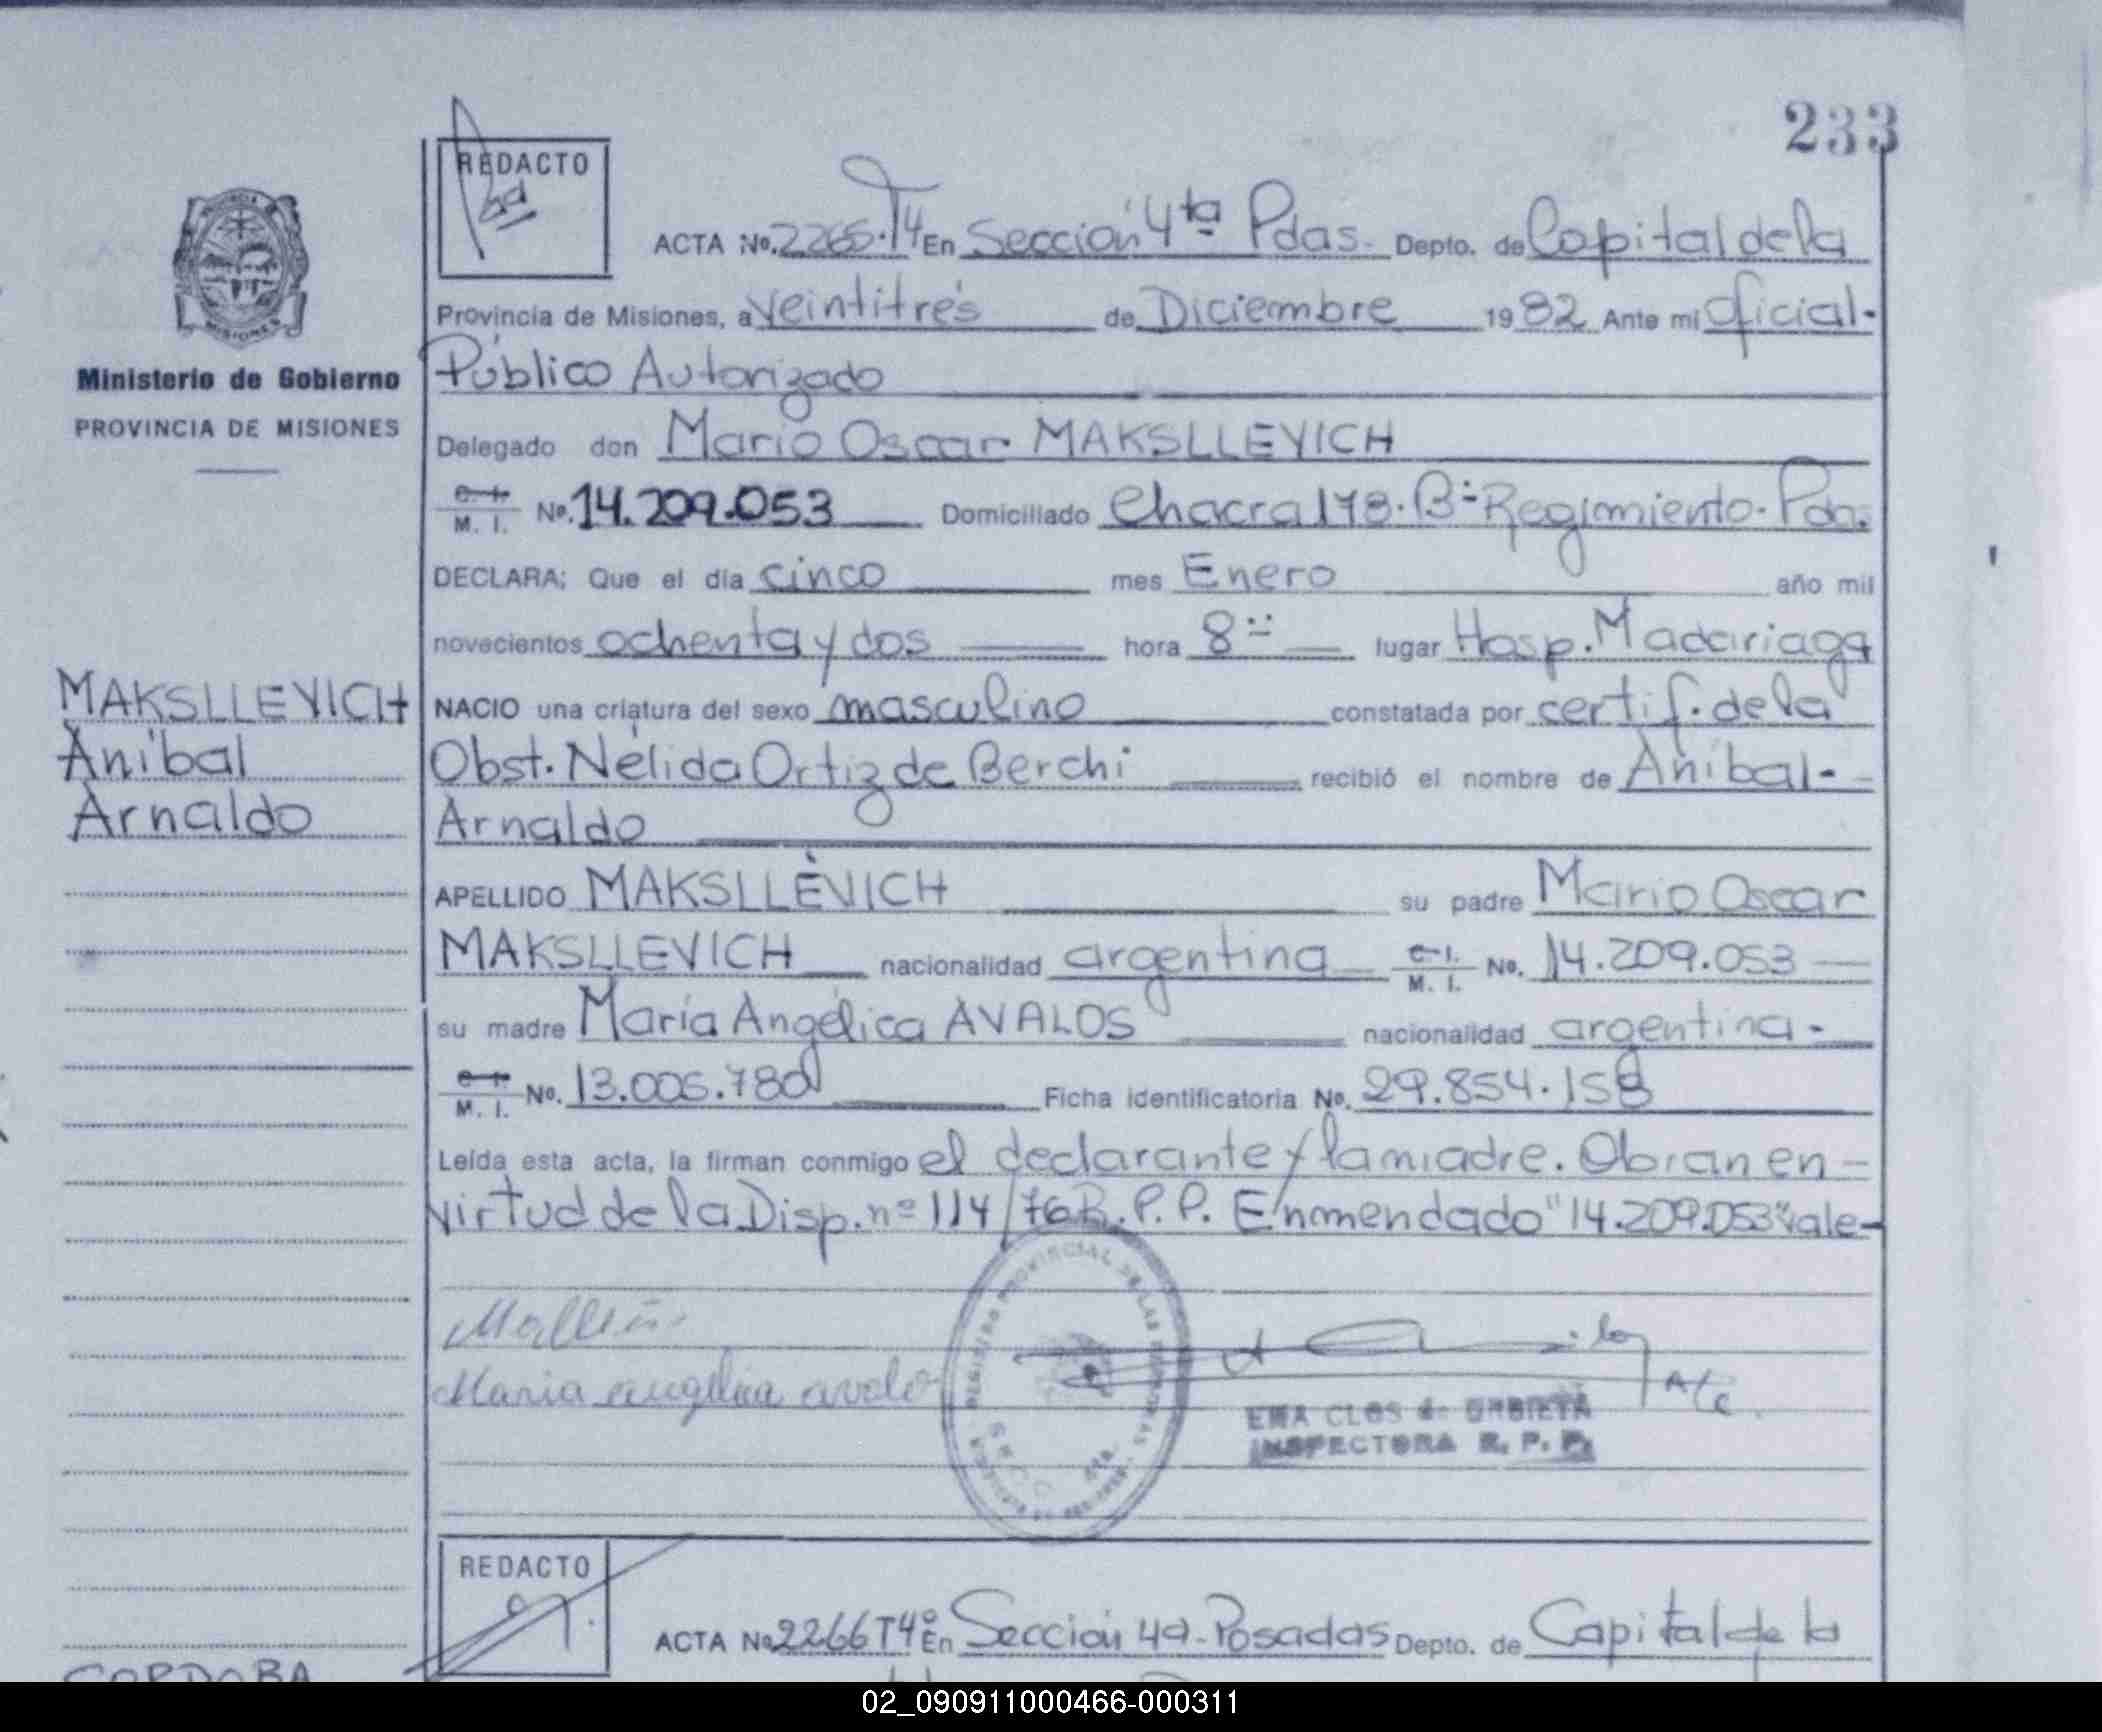 233
REDACTO
ACTA No. 2265.T4 En Sección 4ta Pdas. Depto. de Capital de la
Provincia de Misiones, a Veintitrés de Diciembre 1982 Ante mi Oficial.
Público Autorizado
Delegado don Mario Oscar MAKSLLEVICH
C. I. M. I. No. 14.209.053 Domiciliado Chacra 178. Bº Regimiento. Pdas.
DECLARA; Que el día cinco mes Enero año mil
novecientos ochenta y dos hora 8 lugar Hosp. Madariaga
NACIO una criatura del sexo masculino constatada por certif. de la
Obst. Nélida Ortiz de Berchi recibió el nombre de Aníbal -
Arnaldo
APELLIDO MAKSLLEVICH su padre Mario Oscar
MAKSLLEVICH nacionalidad argentina C. I. M. I. No. 14.209.053
su madre María Angélica AVALOS nacionalidad argentina -
C. I. M. I. No. 13.005.780 Ficha identificatoria No. 29.854.158
Leída esta acta, la firman conmigo el declarante y la madre. Obran en -
virtud de la Disp. nº 114/76 R. P. P. Enmendado "14.209.053" vale-
Maria angelica avalo
REGISTRO PROVINCIAL DE LAS PERSONAS
A/c
EMA CLOS de URBIETA
INSPECTORA R. P. P.
MISIONES
Ministerio de Gobierno
PROVINCIA DE MISIONES
MAKSLLEVICH
Aníbal
Arnaldo
REDACTO
ACTA No 2266 T4º En Sección 4a - Posadas Depto. de Capital de la
CORDOBA
02_090911000466-000311